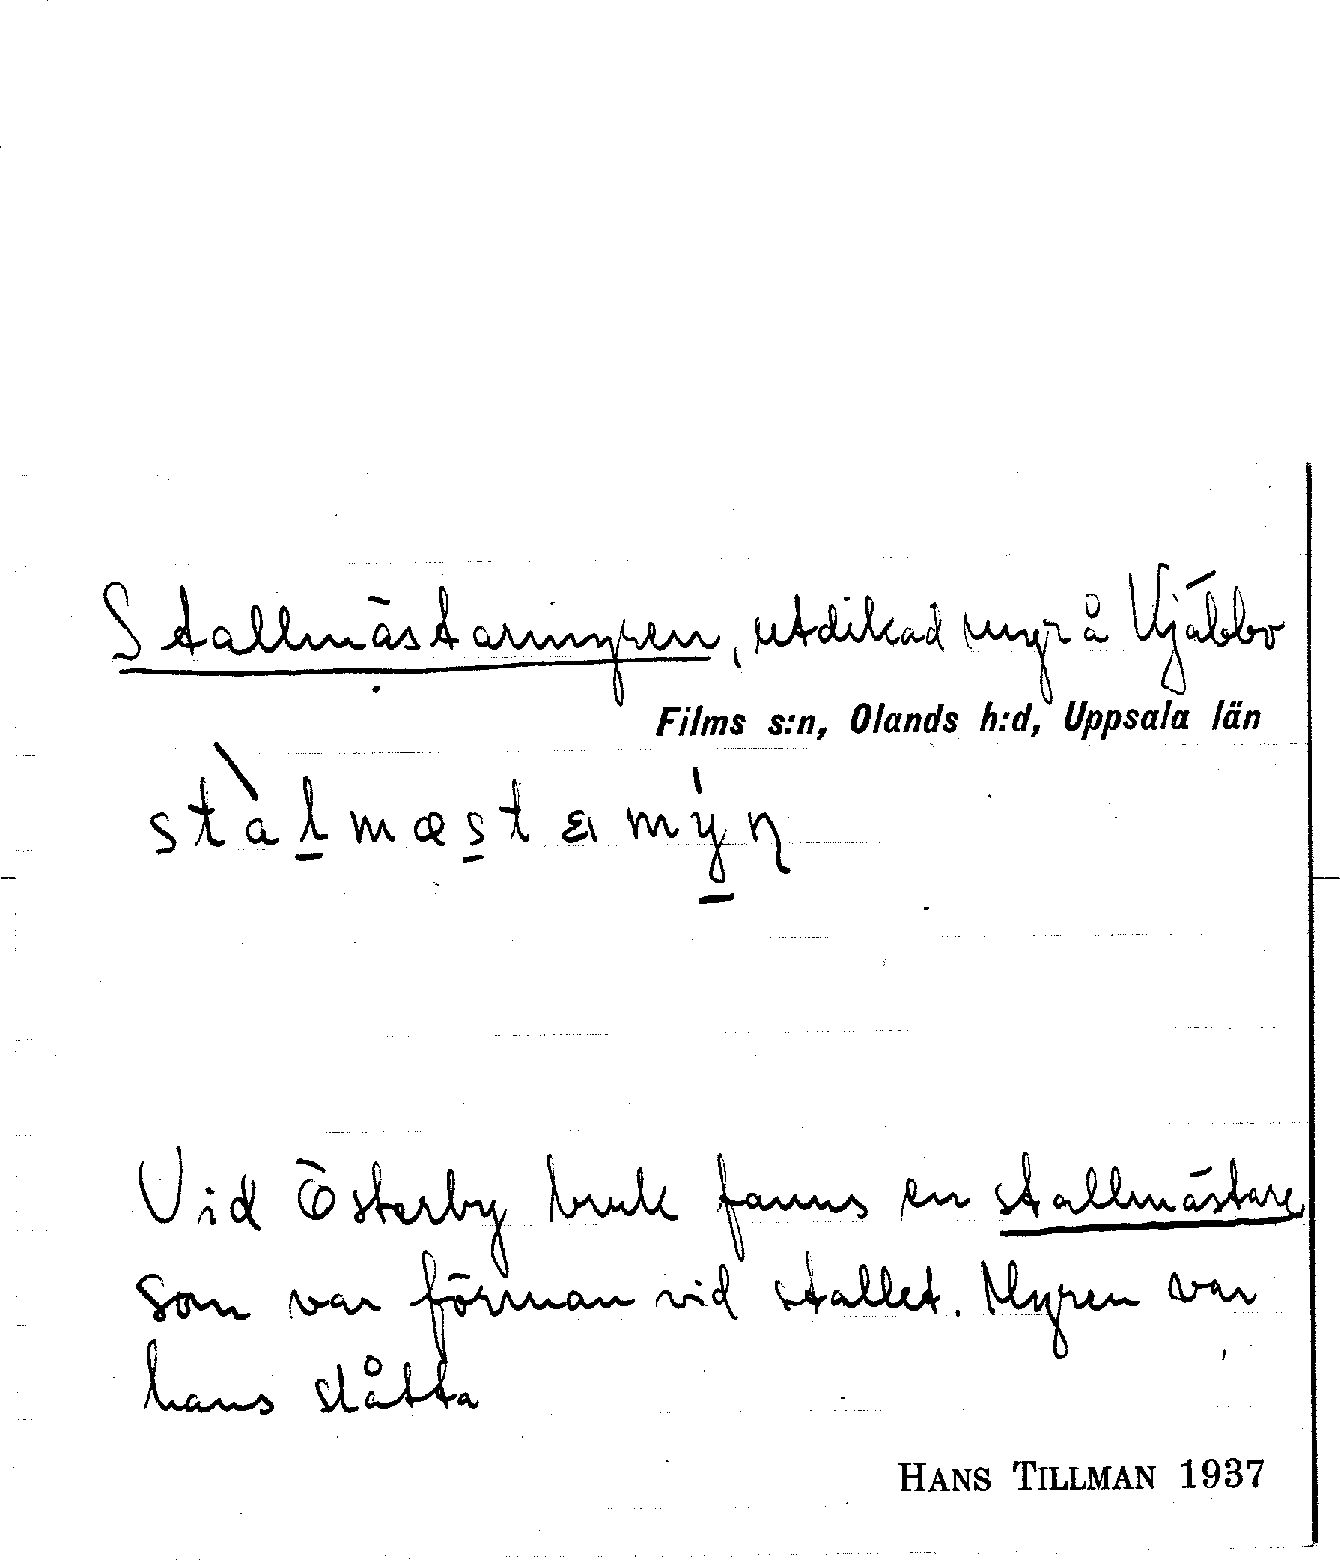 Stallmästarmyren, utdikad myr å Vjäbbo
Films s:n, Olands h:d, Uppsala län
Vid Österby bruk fanns en stallmästare
som var förman vid stallet. Myren var
hans slåtta
HANS TILLMAN 1937